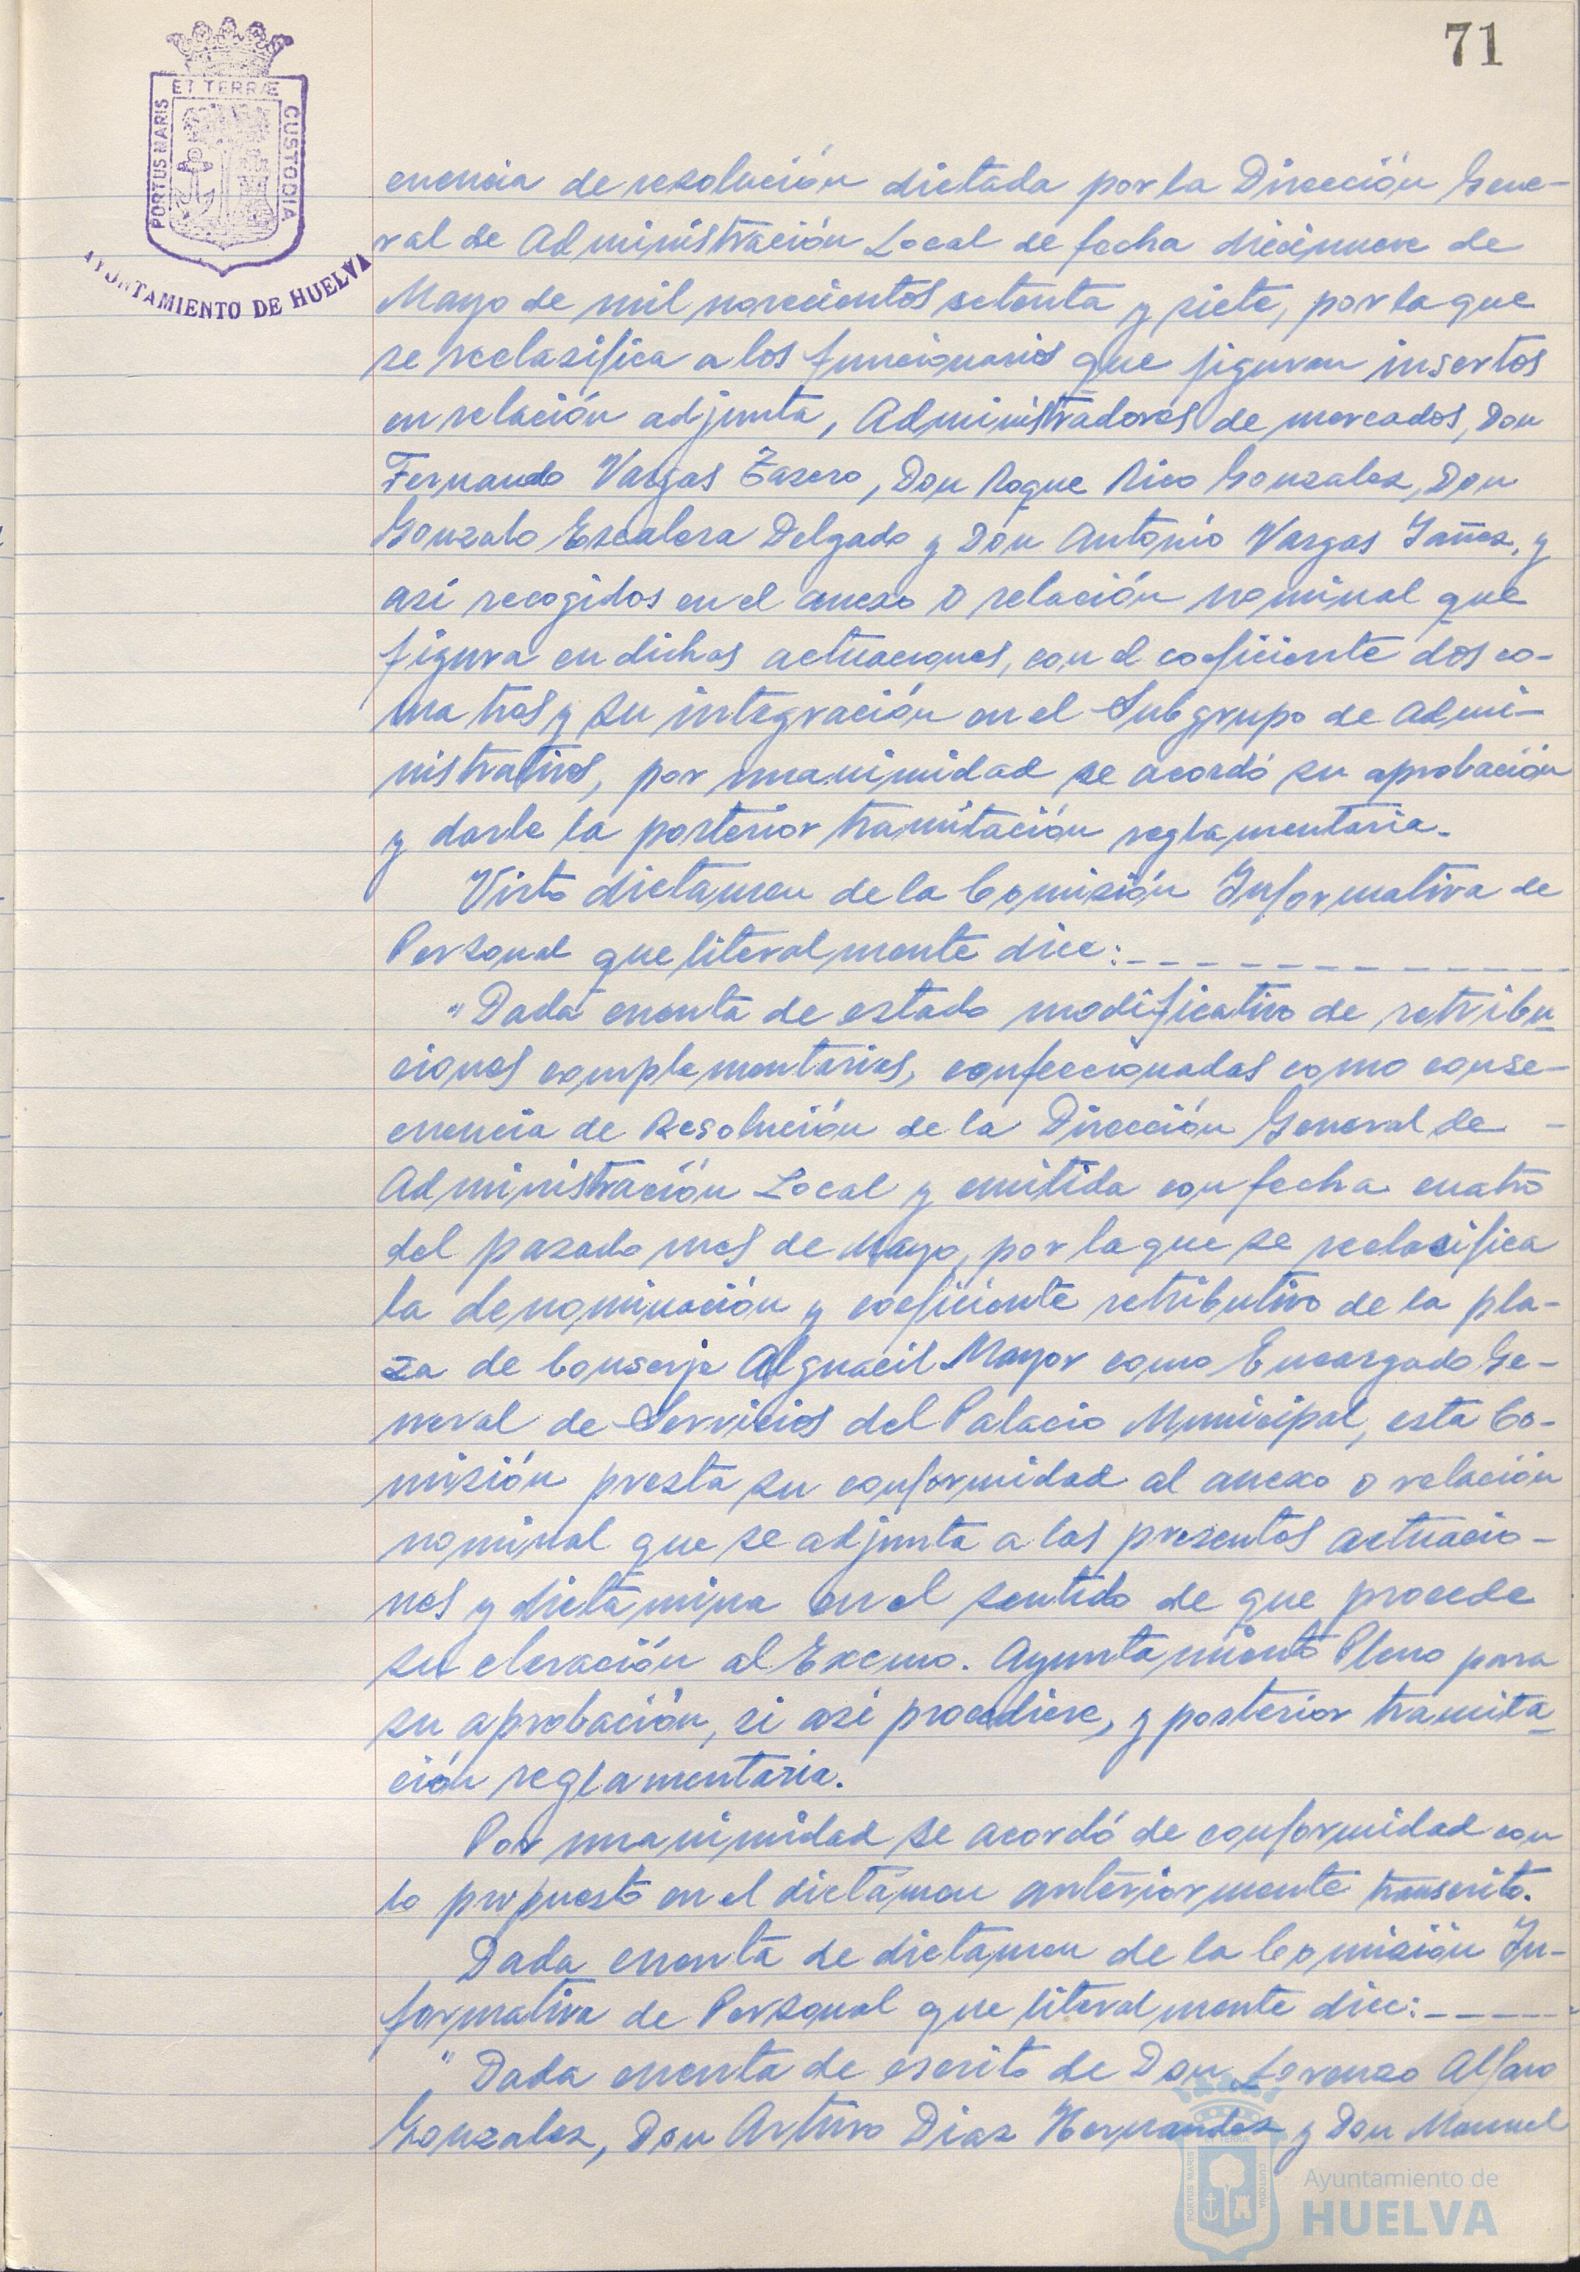 71
PORTUS MARIS ET TERRÆ CUSTODIA
AYUNTAMIENTO DE HUELVA
cuencia de resolución dictada por la Dirección Gene-
ral de Administración Local de fecha diecinueve de
Mayo de mil novecientos setenta y siete, por la que
se reclasifica a los funcionarios que figuran insertos
en relación adjunta, Administradores de mercados, Don
Fernando Vargas Zasero, Don Roque Rico Gonzalez, Don
Gonzalo Escalera Delgado y Don Antonio Vargas Yañez, y
así recogidos en el anexo o relación nominal que
figura en dichas actuaciones, con el coeficiente dos co-
ma tres y su integración en el Subgrupo de Admi-
nistrativos, por unanimidad se acordó su aprobación
y darle la posterior tramitación reglamentaria.
Visto dictamen de la Comisión Informativa de
Personal que literalmente dice:- - - - - - - - - - - -
"Dada cuenta de estado modificativo de retribu-
ciones complementarias, confeccionadas como conse-
cuencia de Resolución de la Dirección General de -
Administración Local y emitida con fecha cuatro
del pasado mes de Mayo, por la que se reclasifica
la denominación y coeficiente retributivo de la pla-
za de Conserje Alguacil Mayor como Encargado Ge-
neral de Servicios del Palacio Municipal, esta Co-
misión presta su conformidad al anexo o relación
nominal que se adjunta a las presentes actuacio-
nes y dictamina en el sentido de que procede
su elevación al Excmo. Ayuntamiento Pleno para
su aprobación, si así procediere, y posterior tramita-
ción reglamentaria.
Por unanimidad se acordó de conformidad con
lo propuesto en el dictámen anteriormente transcrito.
Dada cuenta de dictamen de la Comisión In-
formativa de Personal que literalmente dice:- - - - -
"Dada cuenta de escrito de Don Lorenzo Alfaro
Gonzalez, Don Arturo Diaz Hernandez y Don Manuel
Ayuntamiento de
HUELVA